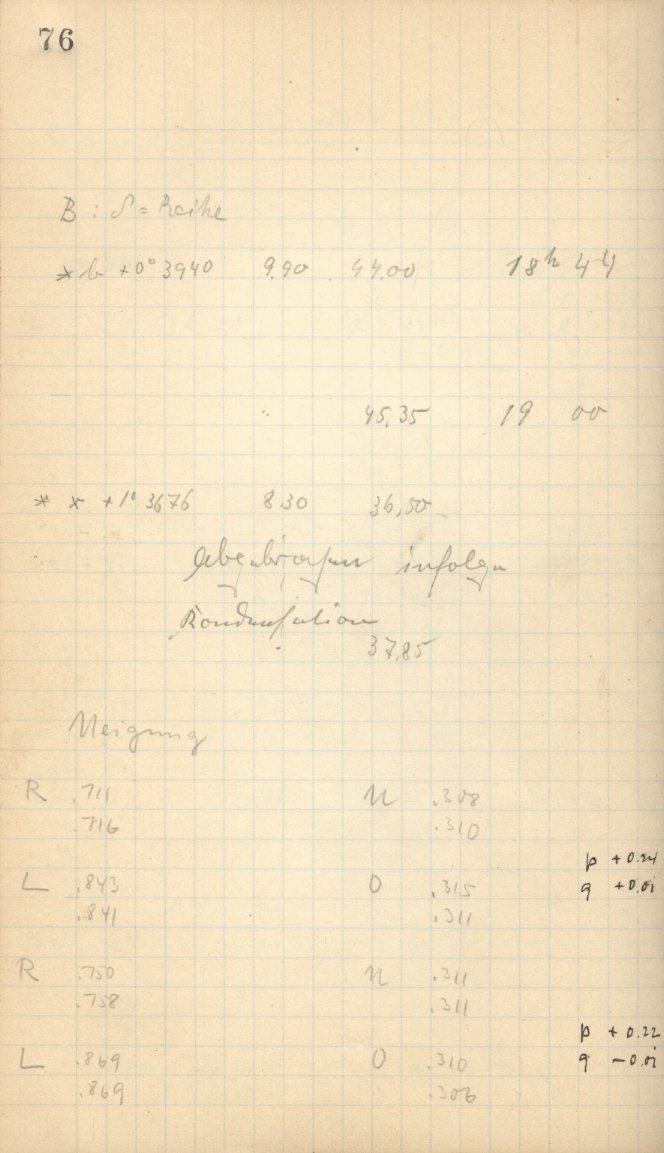 76
B : S = Reihe
* b +0° 3940 9.90 44.00 18h 44
45,35 19 00
* x +1° 3676 8.30 36,50
Abgebrochen infolge
Kondensation
37,85
Neigung
R .711 N .308
.716 .310
p +0.24
L .843 O .315 q +0.01
.841 .311
R .750 N .311
.758 .311
p +0.22
L .869 O .310 q -0.01
.869 .306